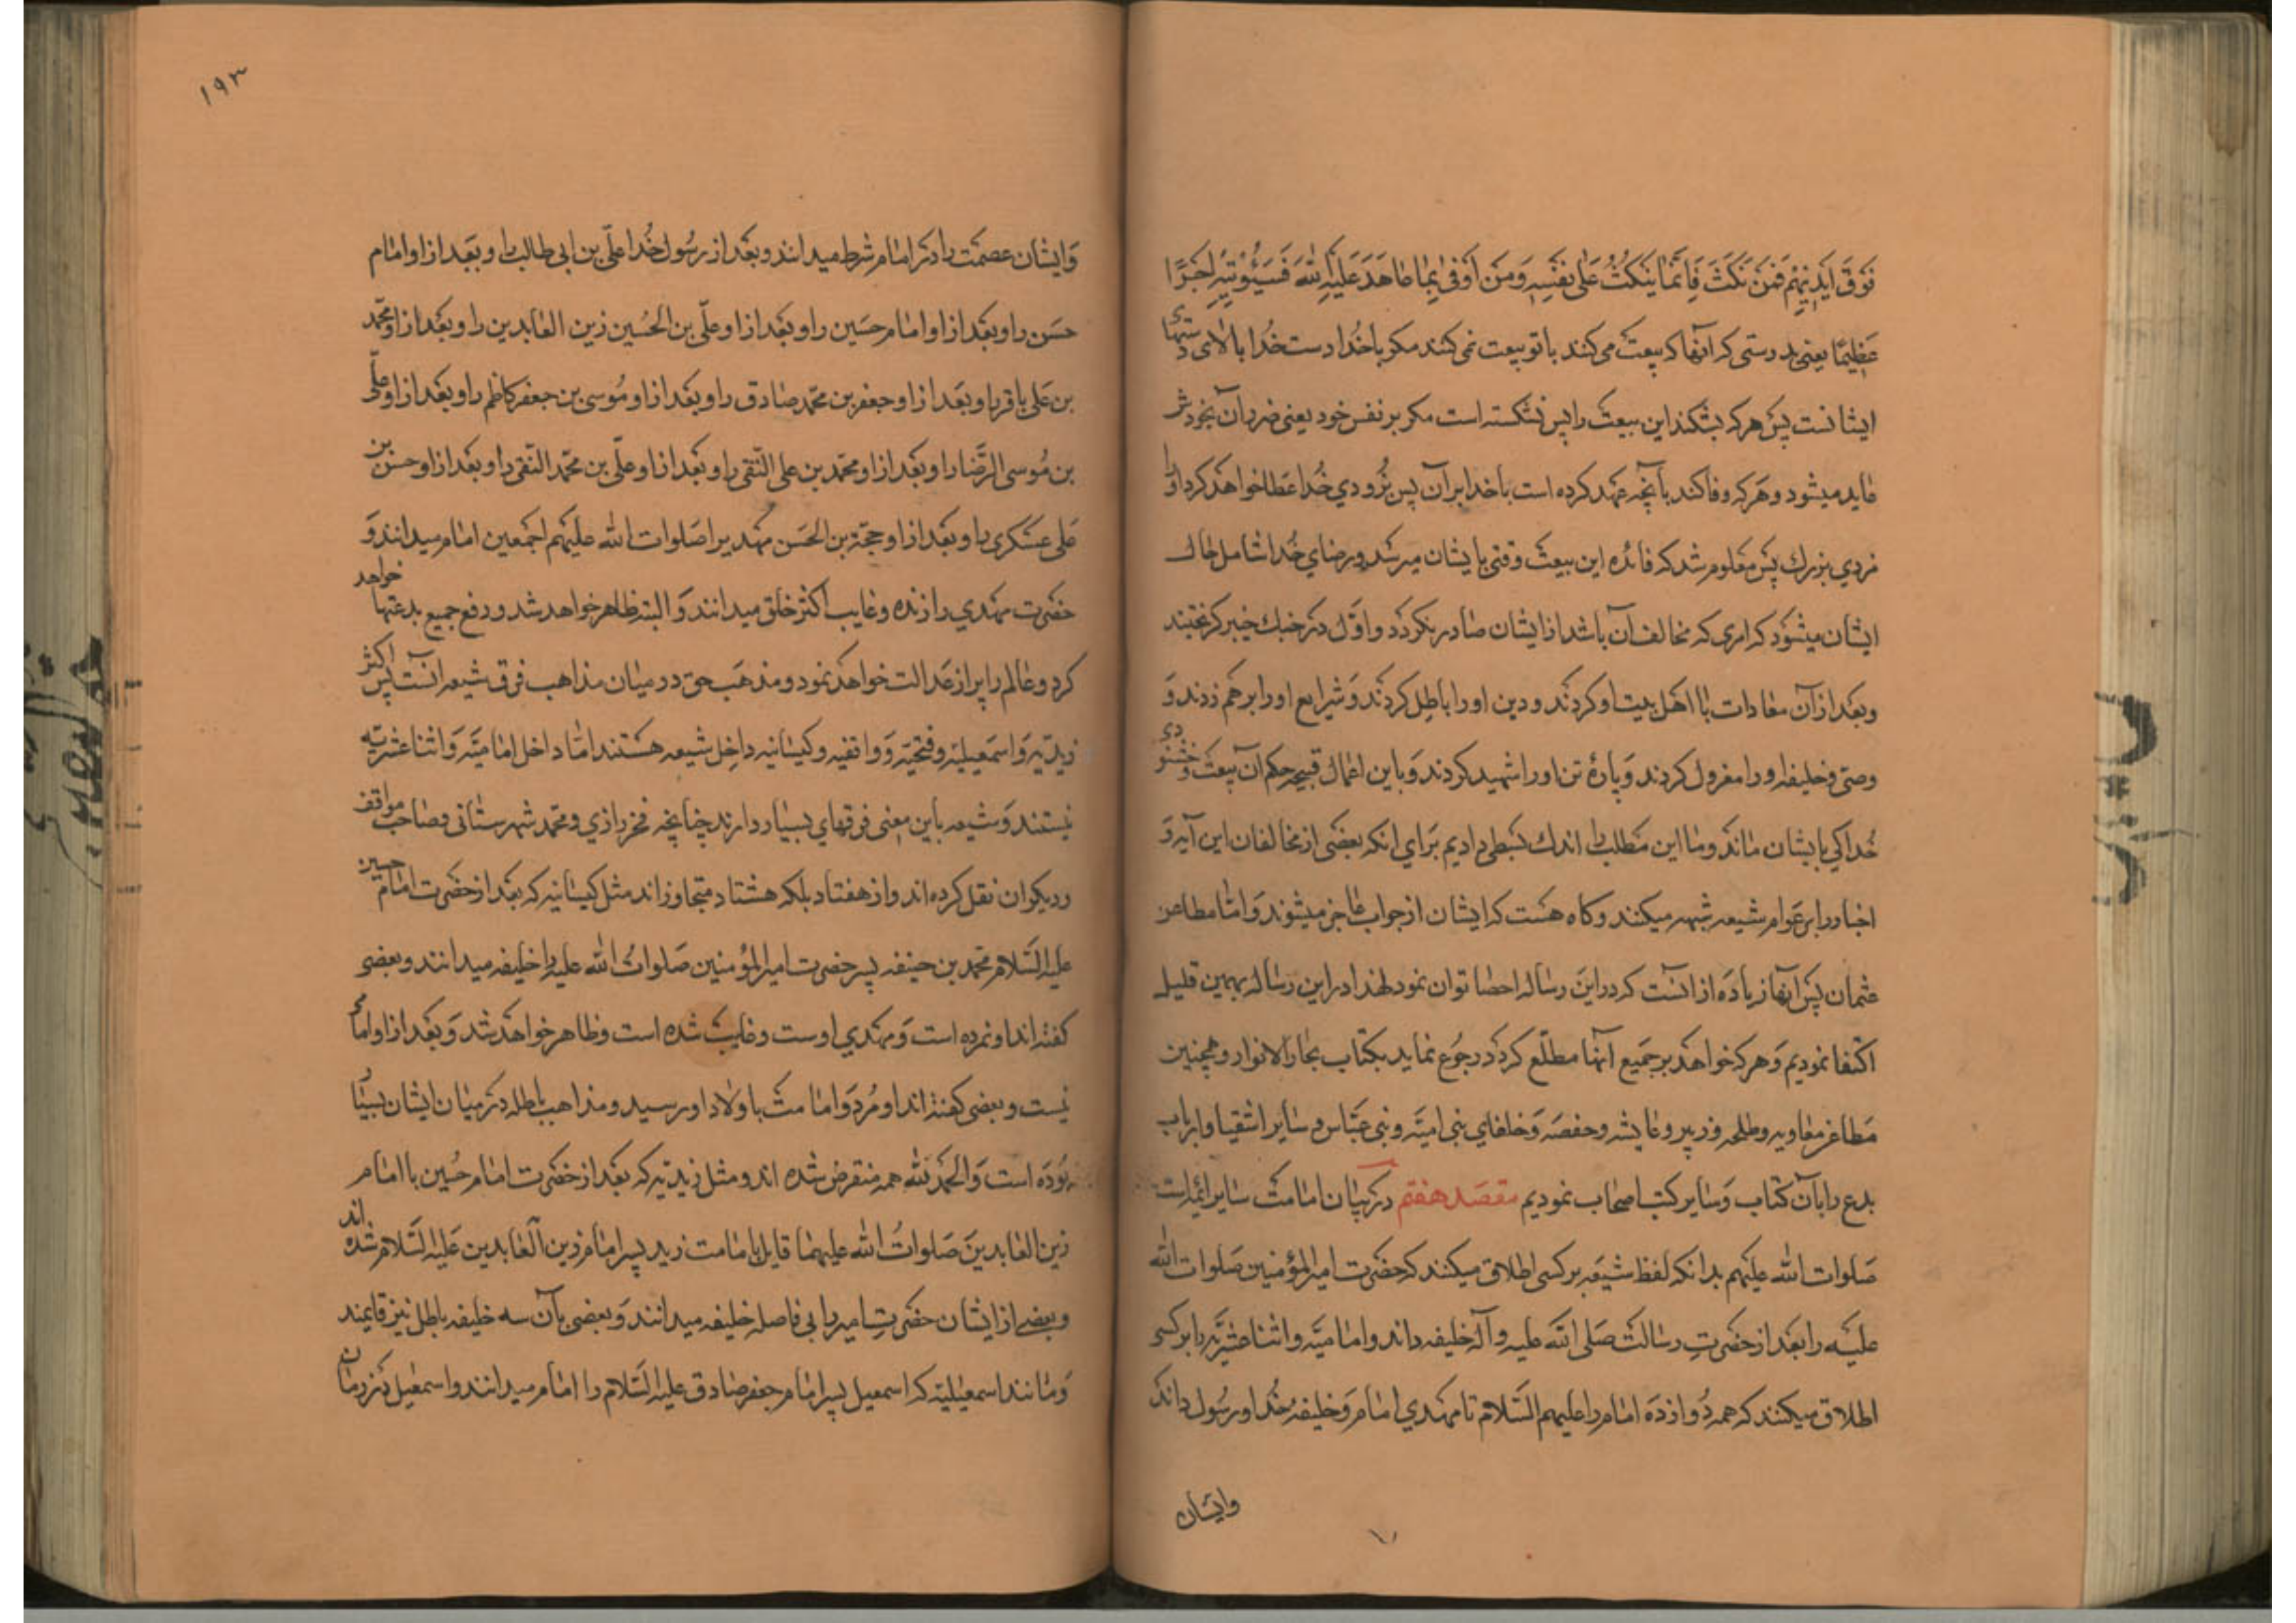 فَوْقَ اَيْدِيْهِمْ فَمَنْ نَكَثَ فَاِنَّمَا يَنْكُثُ عَلٰى نَفْسِهِ وَمَنْ اَوْفٰى بِمَا عَاهَدَ عَلَيْهِ اللهَ فَسَيُؤْتِيْهِ اَجْرًا
عَظِيْمًا يعنى بدرستى كه آنها كه بيعت مى كنند با تو بيعت نمى كنند مكر با خدا دست خدا بالاى دستهاى
ايشانست پس هركه بشكند اين بيعت را پس نشكسته است مكر بر نفس خود يعنى ضرر آن بخودش
عايد ميشود وهركه وفا كند بآنچه عهد كرده است با خدا بر آن پس بزودي خدا عطا خواهد كرد او را
مزدي بزرك پس معلوم شد كه فائده اين بيعت وقتى بايشان ميرسد ورضاي خدا شامل حال
ايشان ميشود كه امرى كه مخالف آن باشد از ايشان صادر نكردد واول در جنك خيبر كريختند
وبعد از آن معادات با اهل بيت او كردند ودين او را باطل كردند وشرايع او را برهم زدند و
وصى وخليفه او را معزول كردند وپارۀ تن او را شهيد كردند وباين اعمال قبيحه حكم آن بيعت وخشنودى
خدا كى بايشان ماند وما اين مطلب را اندك بسطى داديم براي انكه بعضى از مخالفان اين آيه و
اخبار را بر عوام شيعه شبهه ميكنند وكاه هست كه ايشان از جواب عاجز ميشوند واما مطاعن
عثمان پس آنها زياده از انست كه در اين رساله احصا توان نمود لهذا در اين رساله بهمين قليل
اكتفا نموديم وهركه خواهد بر جميع آنها مطلع كردد رجوع نمايد بكتاب بحار الانوار وهمچنين
مطاعن معاويه وطلحه وزبير وعايشه وحفصه وخلفاي بنى اميه وبنى عباس وساير اشقيا وارباب
بدع را بآن كتاب وساير كتب اصحاب نموديم مقصد هفتم در بيان امامت ساير ائمه است
صلوات الله عليهم بدانكه لفظ شيعه بر كسى اطلاق ميكنند كه حضرت امير المؤمنين صلوات الله
عليه را بعد از حضرت رسالت صلى الله عليه وآله خليفه داند واماميه واثنا عشريه را بر كسى
اطلاق ميكنند كه همه دوازده امام را عليهم السلام تا مهدي امام وخليفه خدا ورسول داند
وايشان
١٩٣
وايشان عصمت را در امام شرط ميدانند وبعد از رسول خدا على بن ابى طالب را وبعد از او امام
حسن را وبعد از او امام حسين را وبعد از او على بن الحسين زين العابدين را وبعد از او محمد
بن على باقر را وبعد از او جعفر بن محمد صادق را وبعد از او موسى بن جعفر كاظم را وبعد از او على
بن موسى الرضا را وبعد از او محمد بن على التقى را وبعد از او على بن محمد النقى را وبعد از او حسن بن
على عسكرى را وبعد از او حجة بن الحسن مهدي را صلوات الله عليهم اجمعين امام ميدانند و
حضرت مهدي را زنده وغايب اكثر خلق ميدانند والبته ظاهر خواهد شد ورفع جميع بدعتها خواهد
كرد وعالم را پر از عدالت خواهد نمود ومذهب حق در ميان مذاهب فرق شيعه انست پس اكثر
زيديه واسمعيليه وفتحيه وواقفيه وكيسانيه داخل شيعه هستند اما داخل اماميه واثنا عشريه
نيستند وشيعه باين معنى فرقهاي بسيار دارند چنانچه فخر رازي ومحمد شهرستانى وصاحب مواقف
وديكران نقل كرده اند واز هفتاد بلكه هشتاد متجاوز اند مثل كيسانيه كه بعد از حضرت امام حسين
عليه السلام محمد بن حنيفه پسر حضرت امير المؤمنين صلوات الله عليه را خليفه ميدانند وبعضى
كفته اند او نمرده است ومهدي اوست وغايب شده است وظاهر خواهد شد وبعد از او امامى
نيست وبعضى كفته اند او مرد وامامت باولاد او رسيد ومذاهب باطله در ميان ايشان بسيار
بوده است والحمد لله همه منقرض شده اند ومثل زيديه كه بعد از حضرت امام حسين با امام
زين العابدين صلوات الله عليهما قايل بامامت زيد پسر امام زين العابدين عليه السلام شده اند
وبعضے از ايشان حضرت امير را بى فاصله خليفه ميدانند وبعضى بآن سه خليفه باطل نيز قايلند
ومانند اسمعيليه كه اسمعيل پسر امام جعفر صادق عليه السلام را امام ميدانند واسمعيل در زمان